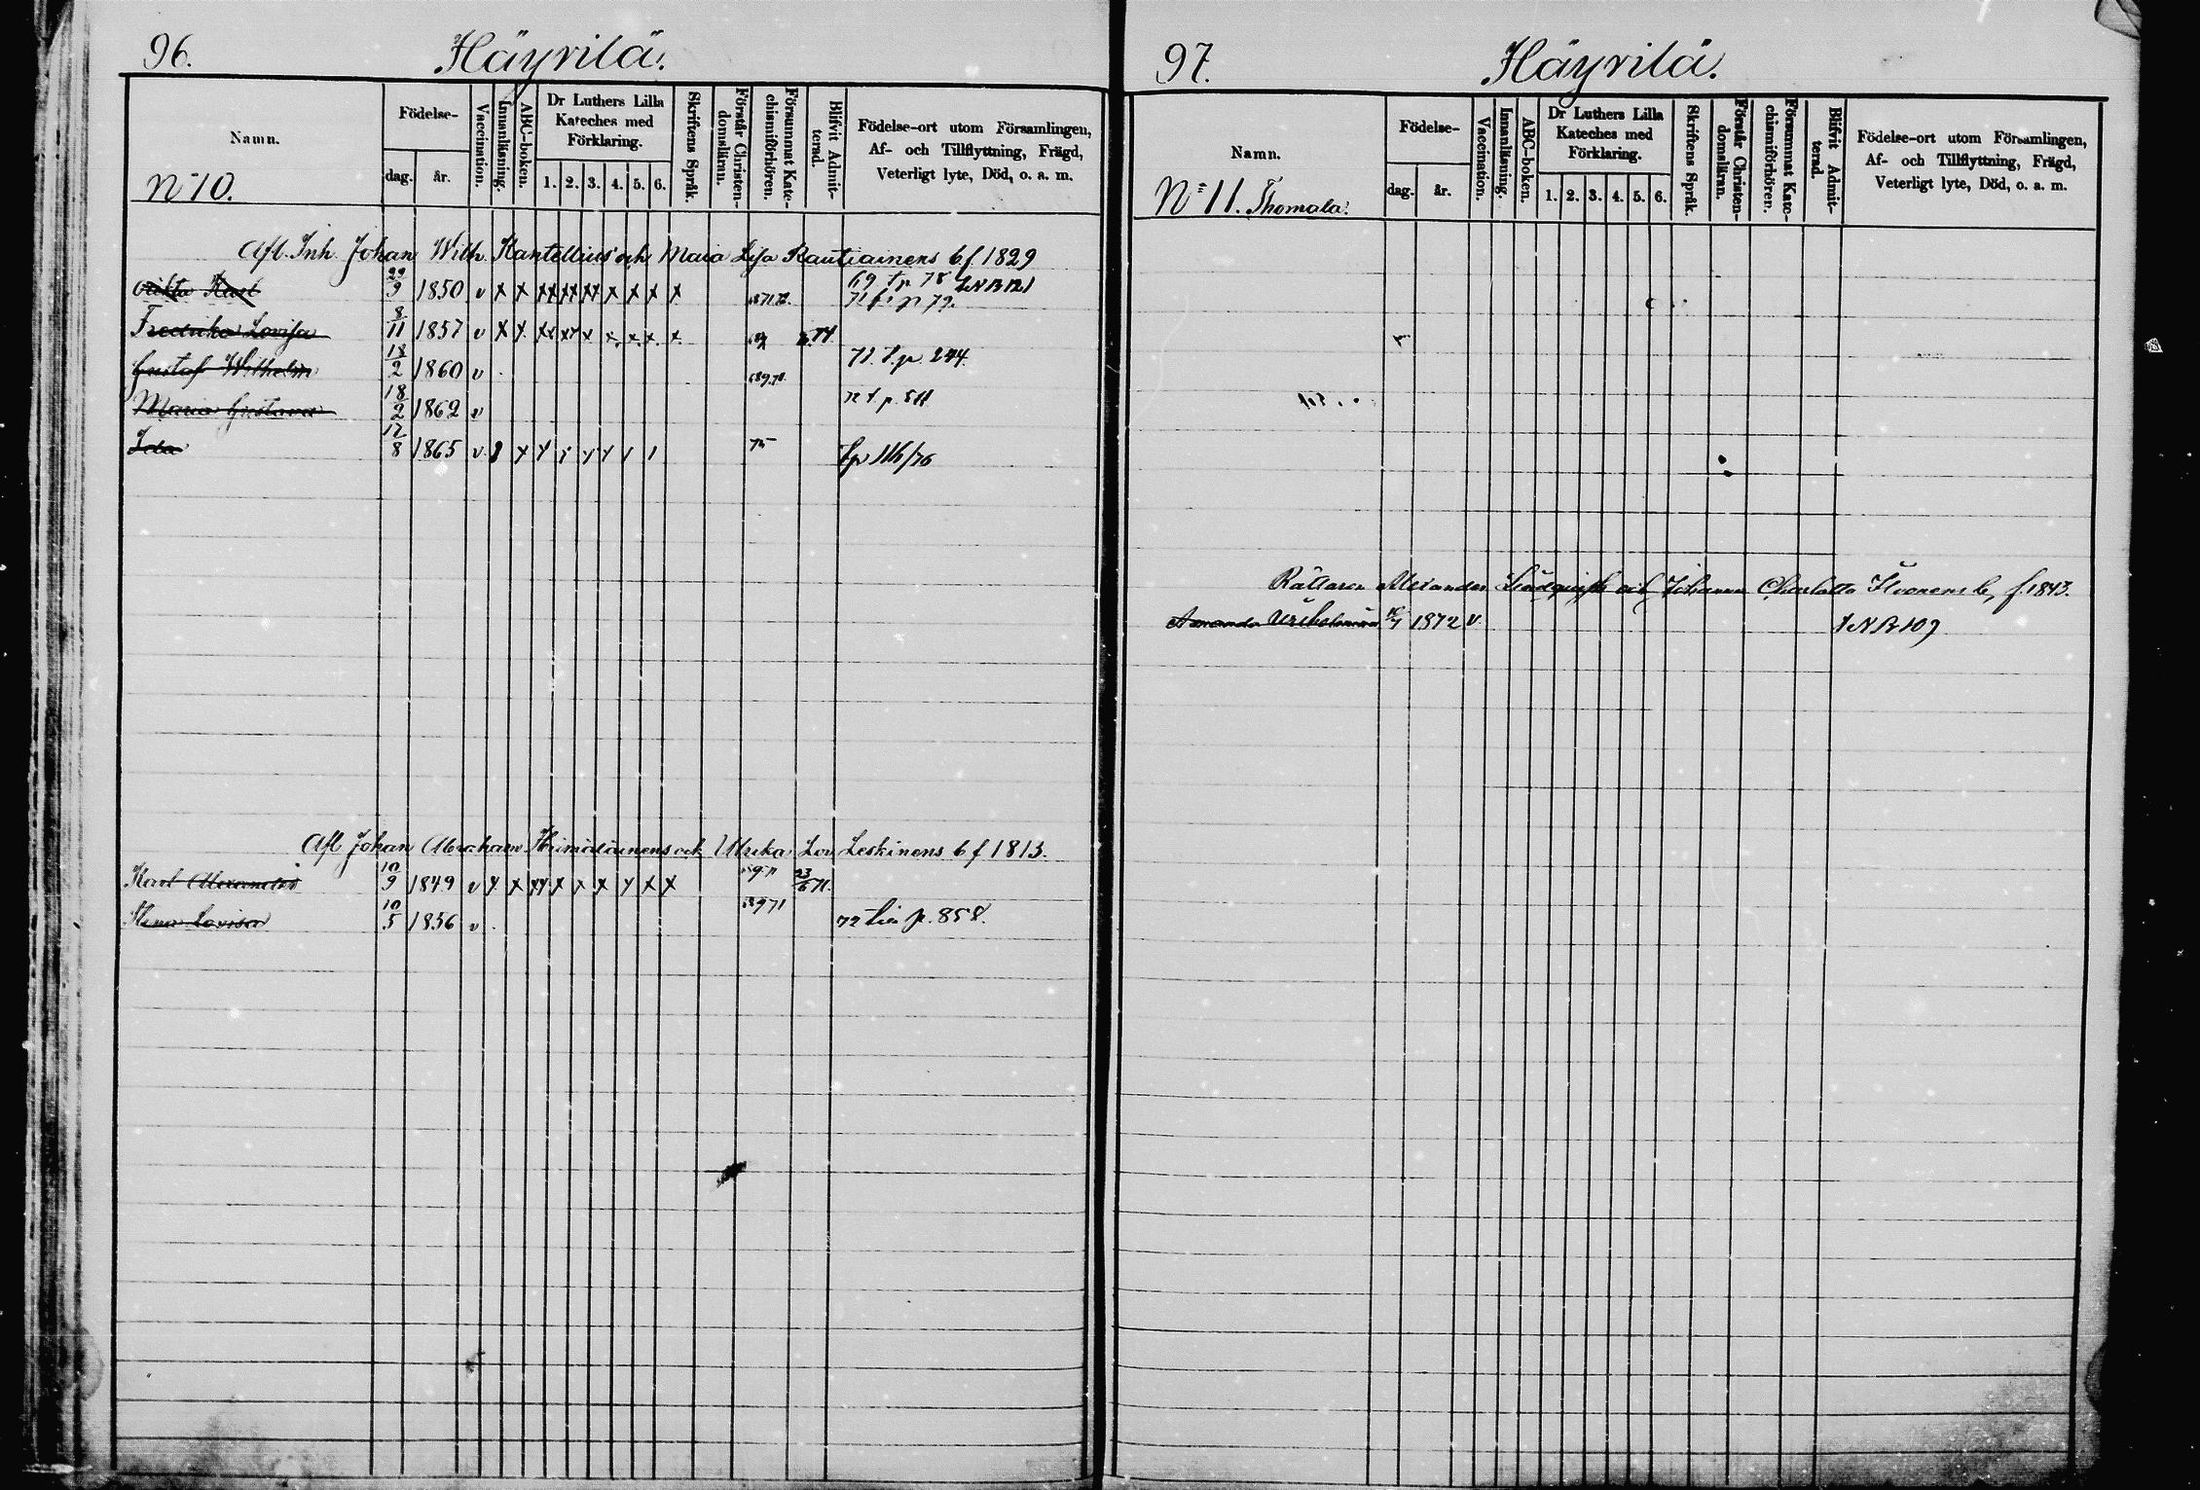 96.
Häyrilä.
Namn.
Födelse-
dag.
år.
Vaccination.
Innanläsning.
ABC-boken.
Dr Luthers Lilla
Kateches med
Förklaring.
1. 2. 3. 4. 5. 6.
Skriftens Språk.
Förstår Christen-
domsläran.
Försummat Kate-
chismiförhören.
Blifvit Admit-
terad.
Födelse-ort utom Församlingen,
Af- och Tillflyttning, Frägd,
Veterligt lyte, Död, o. a. m.
N 10.
Afl. Inh. Johan Wilh. Kantellius och Maria Lisa Rautiainens b f 1829
29/9 1850 v x x xx xx xx x x x x 69 t p 78
71 p 79.
Fredrika Lovisa 8/11 1857 v x x xx xx x x x x x
Gustaf Wilhelm 18/2 1860 v 71. t. p 244.
Maria Gustava 18/2 1862 v 72 t. p. 511
Ida 17/8 1865 v 75 t p 116/76
Afl Johan Abraham och Ulrika Lov Leskinens b f 1813.
Karl Alexander 10/9 1849 v x x xx x x x x x x 23/6 71.
Lovisa 10/5 1856 v 72 p. 858.
97.
Häyrilä.
Namn.
Födelse-
dag.
år.
Vaccination.
Innanläsning.
ABC-boken.
Dr Luthers Lilla
Kateches med
Förklaring.
1. 2. 3. 4. 5. 6.
Skriftens Språk.
Förstår Christen-
domsläran.
Försummat Kate-
chismiförhören.
Blifvit Admit-
terad.
Födelse-ort utom Församlingen,
Af- och Tillflyttning, Frägd,
Veterligt lyte, Död, o. a. m.
N 11. Thomala.
Rättaren Alexander Lindqvist och Johanna Charlotta Ilvonens b, f. 1843.
Amanda 1872 v.